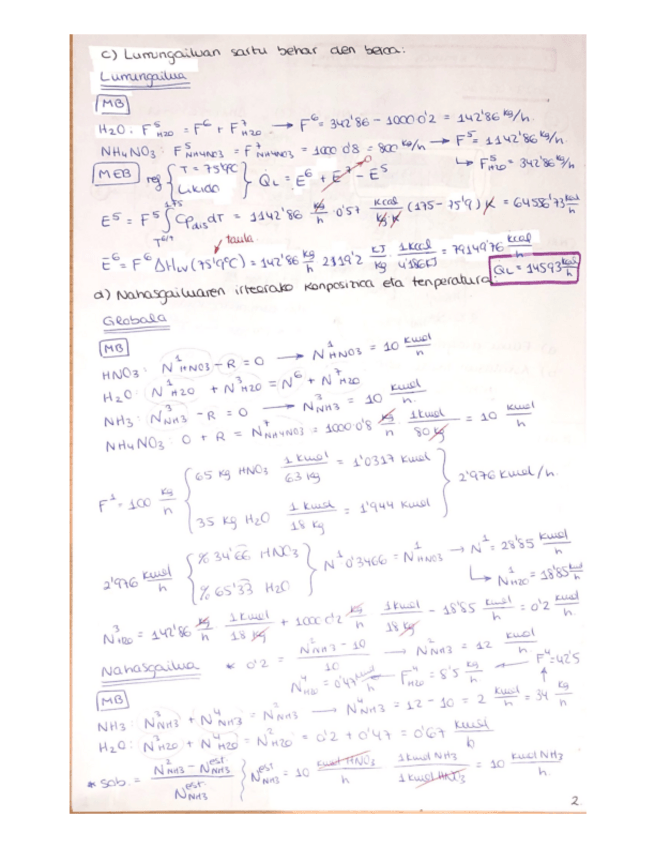 c) Lurrungailuan sartu behar den beroa:
Lurrungailua
MB
H2O: F⁵H2O = F⁶ + F⁷H2O → F⁶ = 342'86 - 1000·0'2 = 142'86 kg/h
NH4NO3: F⁵NH4NO3 = F⁷NH4NO3 = 1000·0'8 = 800 kg/h → F⁵ = 1142'86 kg/h
↳ F⁵H2O = 342'86 kg/h
MEB erref { T = 75'9ºC Likido } QL = E⁶ + E⁷ - E⁵
E⁵ = F⁵ ∫ CpdisdT = 1142'86 kg/h 0'57 kcal/kg·K (175-75'9) K = 64556'73 kcal/h
taula
E⁶ = F⁶ ΔHLV (75'9ºC) = 142'86 kg/h 2319'2 kJ/kg 1kcal/4'186kJ = 79149'76 kcal/h
QL = 14593 kcal/h
d) Nahasgailuaren irteerako konposizioa eta tenperatura
Globala
MB
HNO3: N¹HNO3 - R = 0 → N¹HNO3 = 10 kmol/h
H2O: N¹H2O + N³H2O = N⁶ + N⁷H2O
NH3: N³NH3 - R = 0 → N³NH3 = 10 kmol/h
NH4NO3: 0 + R = N⁷NH4NO3 = 1000·0'8 kg/h 1kmol/80kg = 10 kmol/h
F¹ = 100 kg/h { 65 kg HNO3 1 kmol/63 kg = 1'0317 kmol
35 kg H2O 1 kmol/18 kg = 1'944 kmol } 2'976 kmol/h
2'976 kmol/h { % 34'66 HNO3
% 65'33 H2O } N¹ 0'3466 = N¹HNO3 → N¹ = 28'85 kmol/h
↳ N¹H2O = 18'85 kmol/h
N³H2O = 142'86 kg/h 1kmol/18kg + 1000·0'2 kg/h 1kmol/18kg - 18'85 kmol/h = 0'2 kmol/h
Nahasgailua * 0'2 = N²NH3 - 10 / 10 → N²NH3 = 12 kmol/h
N⁴H2O = 0'47 kmol/h ← F⁴H2O = 8'5 kg/h ← F⁴ = 42'5
MB
NH3: N³NH3 + N⁴NH3 = N²NH3 → N⁴NH3 = 12 - 10 = 2 kmol/h = 34 kg/h
H2O: N³H2O + N⁴H2O = N²H2O = 0'2 + 0'47 = 0'67 kmol/h
* sob. = N²NH3 - NestNH3 / NestNH3 } NestNH3 = 10 kmol HNO3/h 1kmol NH3/1kmol HNO3 = 10 kmol NH3/h
2